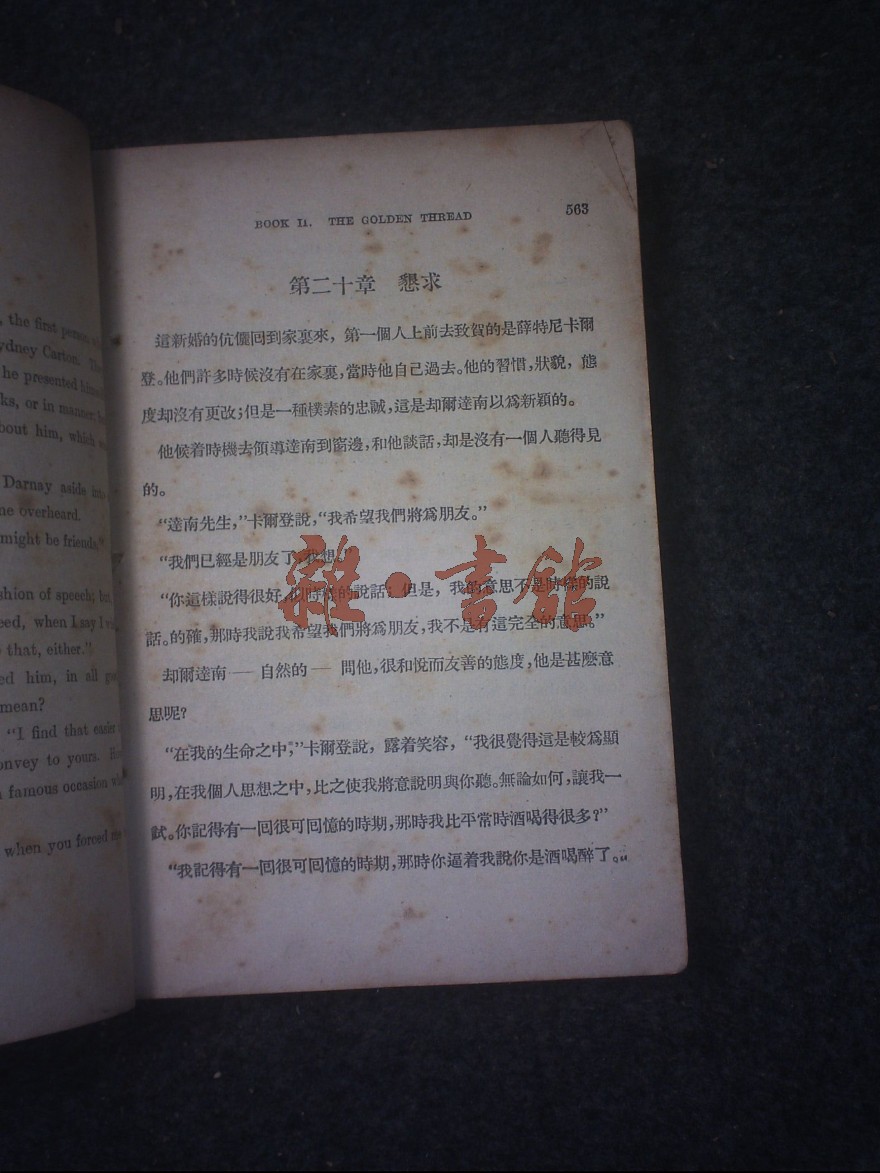 , the first person
ydney Carton.
he presented
ks, or in manner;
bout him, which
Darnay aside into
ne overheard.
might be friends."
shion of speech; but,
eed, when I say I
that, either."
ed him, in all
mean?
"I find that easier
onvey to yours.
famous occasion
when you forced
BOOK II. THE GOLDEN THREAD
563
第二十章 懇求
這新婚的伉儷回到家裏來，第一個人上前去致賀的是薛特尼卡爾
登。他們許多時候沒有在家裏，當時他自己過去。他的習慣，狀貌，態
度却沒有更改；但是一種樸素的忠誠，這是却爾達南以爲新穎的。
他候着時機去領導達南到窗邊，和他談話，却是沒有一個人聽得見
的。
“達南先生，”卡爾登說，“我希望我們將爲朋友。”
“我們已經是朋友了，我想。”
“你這樣說得很好，照時樣的說話；但是，我的意思不是時樣的說
話。的確，那時我說我希望我們將爲朋友，我不是有這完全的意思。”
却爾達南 — 自然的 — 問他，很和悅而友善的態度，他是甚麽意
思呢？
“在我的生命之中，”卡爾登說，露着笑容，“我很覺得這是較爲顯
明，在我個人思想之中，比之使我將意說明與你聽。無論如何，讓我一
試。你記得有一回很可回憶的時期，那時我比平常時酒喝得很多？”
“我記得有一回很可回憶的時期，那時你逼着我說你是酒喝醉了。”
雜·書館